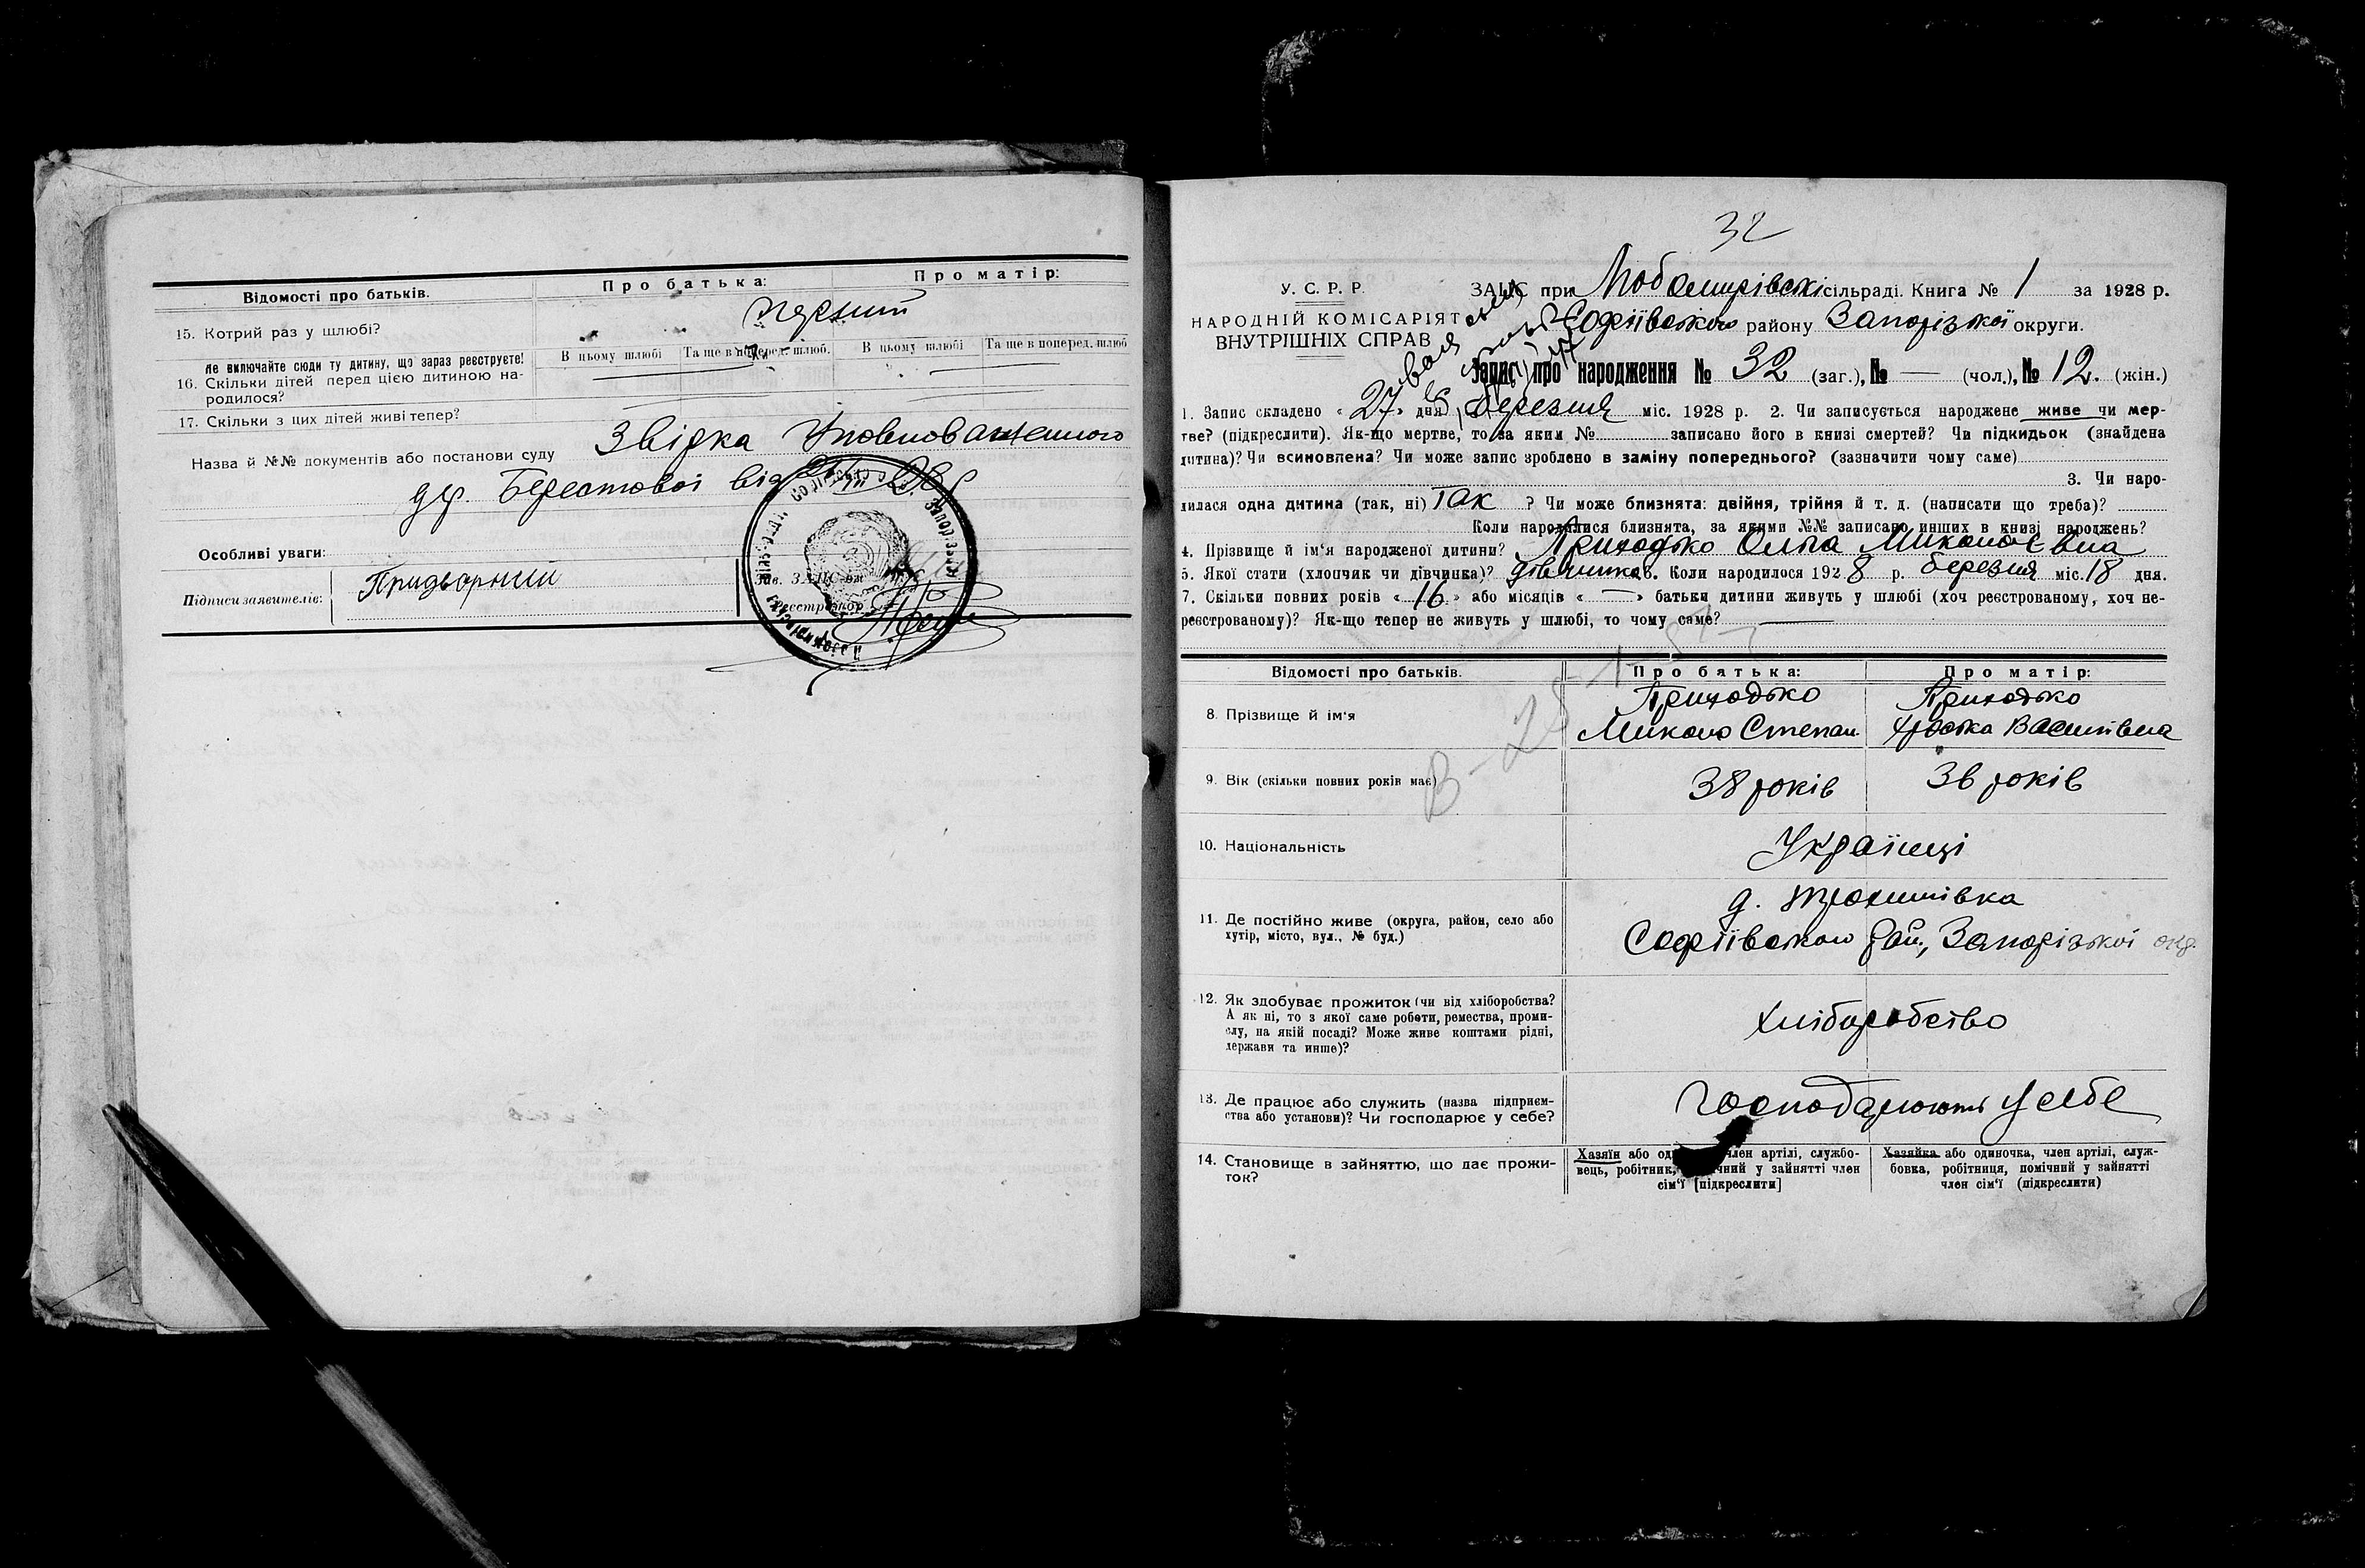 Відомості про батьків.
Про батька:
Про матір:
15. Котрий раз у шлюбі?
перший
Не включайте сюди ту дитину, що зараз реєструєте!
16. Скільки дітей перед цією дитиною на-
родилося?
В цьому шлюбі
Та ще в поперед. шлюб.
В цьому шлюбі
Та ще в поперед. шлюб
17. Скільки з цих дітей живі тепер?
Назва й №№ документів або постанови суду
Звірка Уповноваженного
др. Берестової від
Особливі уваги:
Підписи заявителів:
Придворний
Зав. ЗАГС'ом
Реєстратор
32
У. С. Р. Р.
НАРОДНІЙ КОМІСАРІЯТ
ВНУТРІШНІХ СПРАВ
ЗАГС при Любомирівскі сільраді. Книга № 1 за 1928 р.
Софіївського району Запорізької округи.
Запис про народження № 32 (заг.), № — (чол.), № 12. (жін.)
1. Запис складено «27» дня березня міс. 1928 р. 2. Чи записується народжене живе чи мер-
тве? (підкреслити). Як-що мертве, то за яким № записано його в книзі смертей? Чи підкидьок (знайдена
дитина)? Чи всиновлена? Чи може запис зроблено в заміну попереднього? (зазначити чому саме)
3. Чи наро-
дилася одна дитина (так, ні) Так ? Чи може близнята: двійня, трійня й т. д. (написати що треба)?
Коли народилися близнята, за якими №№ записано инших в книзі народжень?
4. Прізвище й ім'я народженої дитини? Приходько Ольга Миколаєвна
5. Якої стати (хлопчик чи дівчинка)? дівчинка 6. Коли народилося 1928 р. березня міс. 18 дня.
7. Скільки повних років «16» або місяців «—» батьки дитини живуть у шлюбі (хоч реєстрованому, хоч не-
реєстрованому)? Як-що тепер не живуть у шлюбі, то чому саме? —
Відомості про батьків.
Про батька:
Про матір:
8. Прізвище й ім'я
Приходько
Микола Степан.
Приходько
Василівна
9. Вік (скільки повних років має)
38 років
36 років
10. Національність
Українці
11. Де постійно живе (округа, район, село або
хутір, місто, вул., № буд.)
д. Трохимівка
Софіївського рай., Запорізької окр.
12. Як здобуває прожиток (чи від хліборобства?
А як ні, то з якої саме роботи, ремества, проми-
слу, на якій посаді? Може живе коштами рідні,
держави та инше)?
хліборобство
13. Де працює або служить (назва підприєм-
ства або установи)? Чи господарює у себе?
Господарюють у себе
14. Становище в зайняттю, що дає прожи-
ток?
Хазяїн або од член артілі, службо-
вець, робітник, чний у зайнятті член
сім'ї [підкреслити]
Хазяйка або одиночка, член артілі, служ-
бовка, робітниця, помічний у зайнятті
член сім'ї (підкреслити)